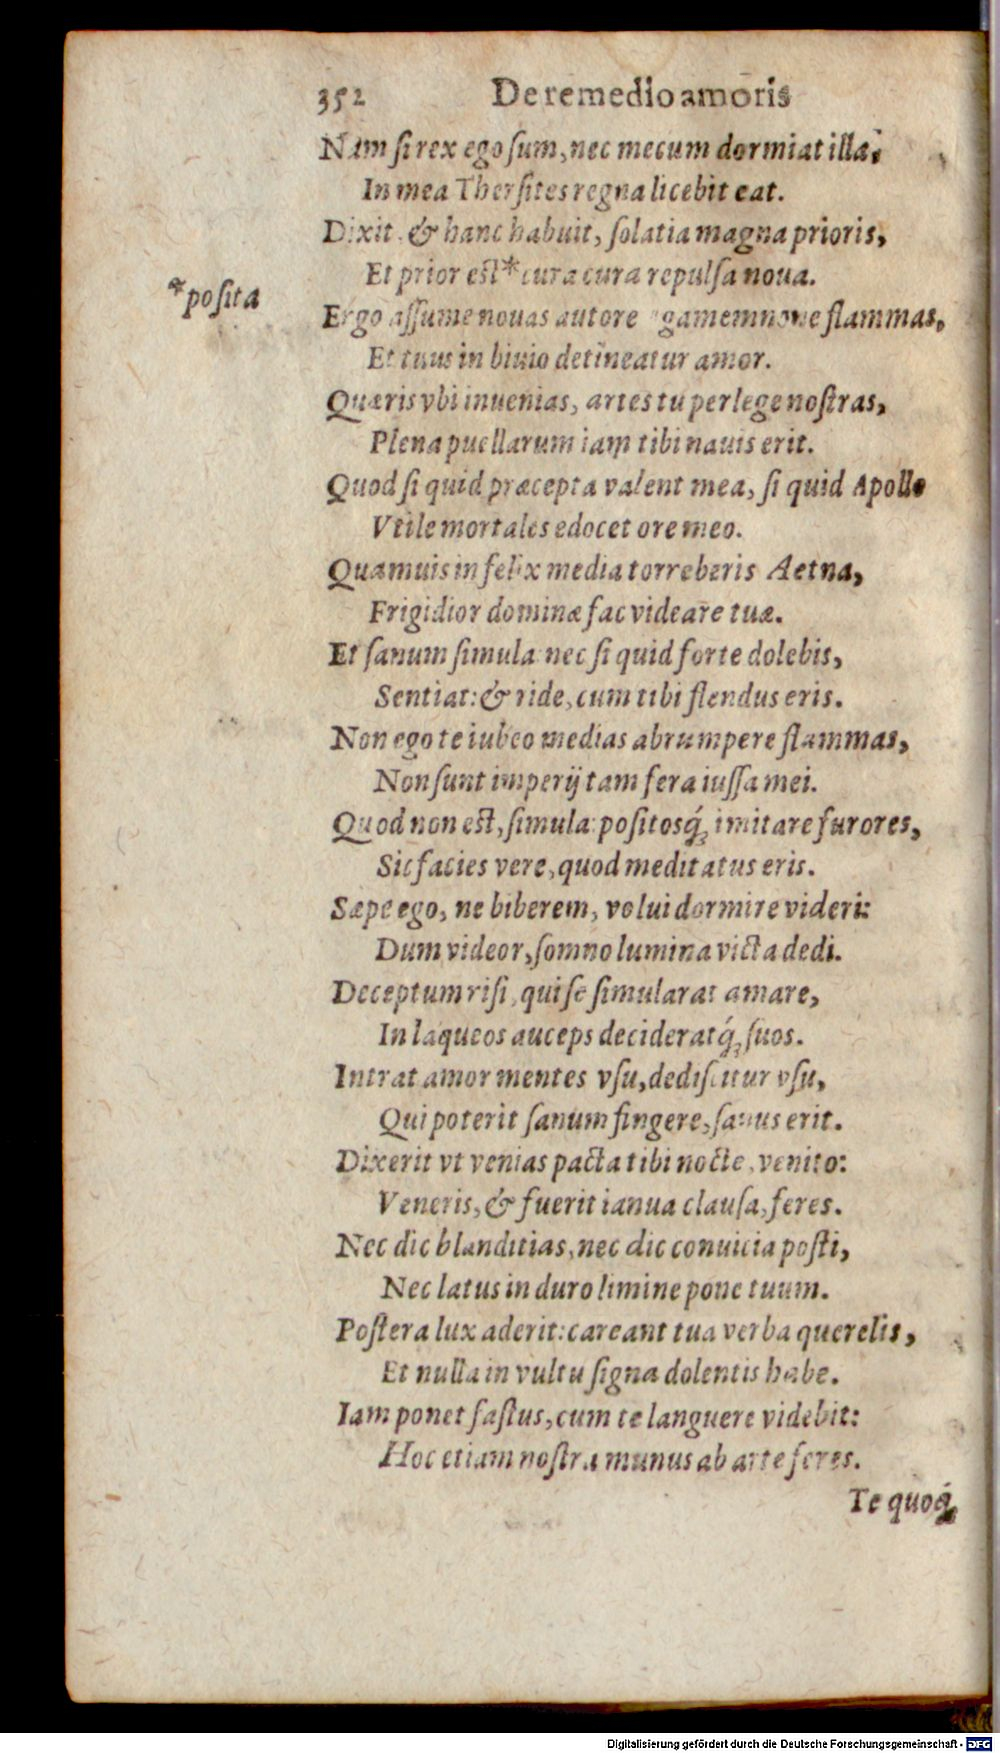 352 De remedio amoris
Nam ſi rex ego ſum, nec mecum dormiat illa;
In mea Therſites regna licebit eat.
Dixit, & hanc habuit, ſolatia magna prioris,
Et prior eſt * cura cura repulſa noua.
* poſita
Ergo aſſume nouas autore gamemnone flammas,
Et tuus in biuio detineatur amor.
Quæris vbi inuenias, artes tu perlege noſtras,
Plena puellarum iam tibi nauis erit.
Quod ſi quid præcepta valent mea, ſi quid Apollo
Vtile mortales edocet ore meo.
Quamuis infelix media torreberis Aetna,
Frigidior dominæ fac videare tuæ.
Et ſanum ſimula: nec ſi quid forte dolebis,
Sentiat: & ride, cum tibi flendus eris.
Non ego te iubeo medias abrumpere flammas,
Non ſunt imperij tam fera iuſſa mei.
Quod non eſt, ſimula: poſitosq́; imitare furores,
Sic facies vere, quod meditatus eris.
Sæpe ego, ne biberem, volui dormire videri:
Dum videor, ſomno lumina victa dedi.
Deceptum riſi, qui ſe ſimularat amare,
In laqueos auceps decideratq́; ſuos.
Intrat amor mentes vſu, dediſcitur vſu,
Qui poterit ſanum fingere, ſanus erit.
Dixerit vt venias pacta tibi nocte, venito:
Veneris, & fuerit ianua clauſa, feres.
Nec dic blanditias, nec dic conuicia poſti,
Nec latus in duro limine pone tuum.
Poſtera lux aderit: careant tua verba querelis,
Et nulla in vultu ſigna dolentis habe.
Iam ponet faſtus, cum te languere videbit:
Hoc etiam noſtra munus ab arte feres.
Te quoq́;
Digitalisierung gefördert durch die Deutsche Forschungsgemeinschaft - DFG